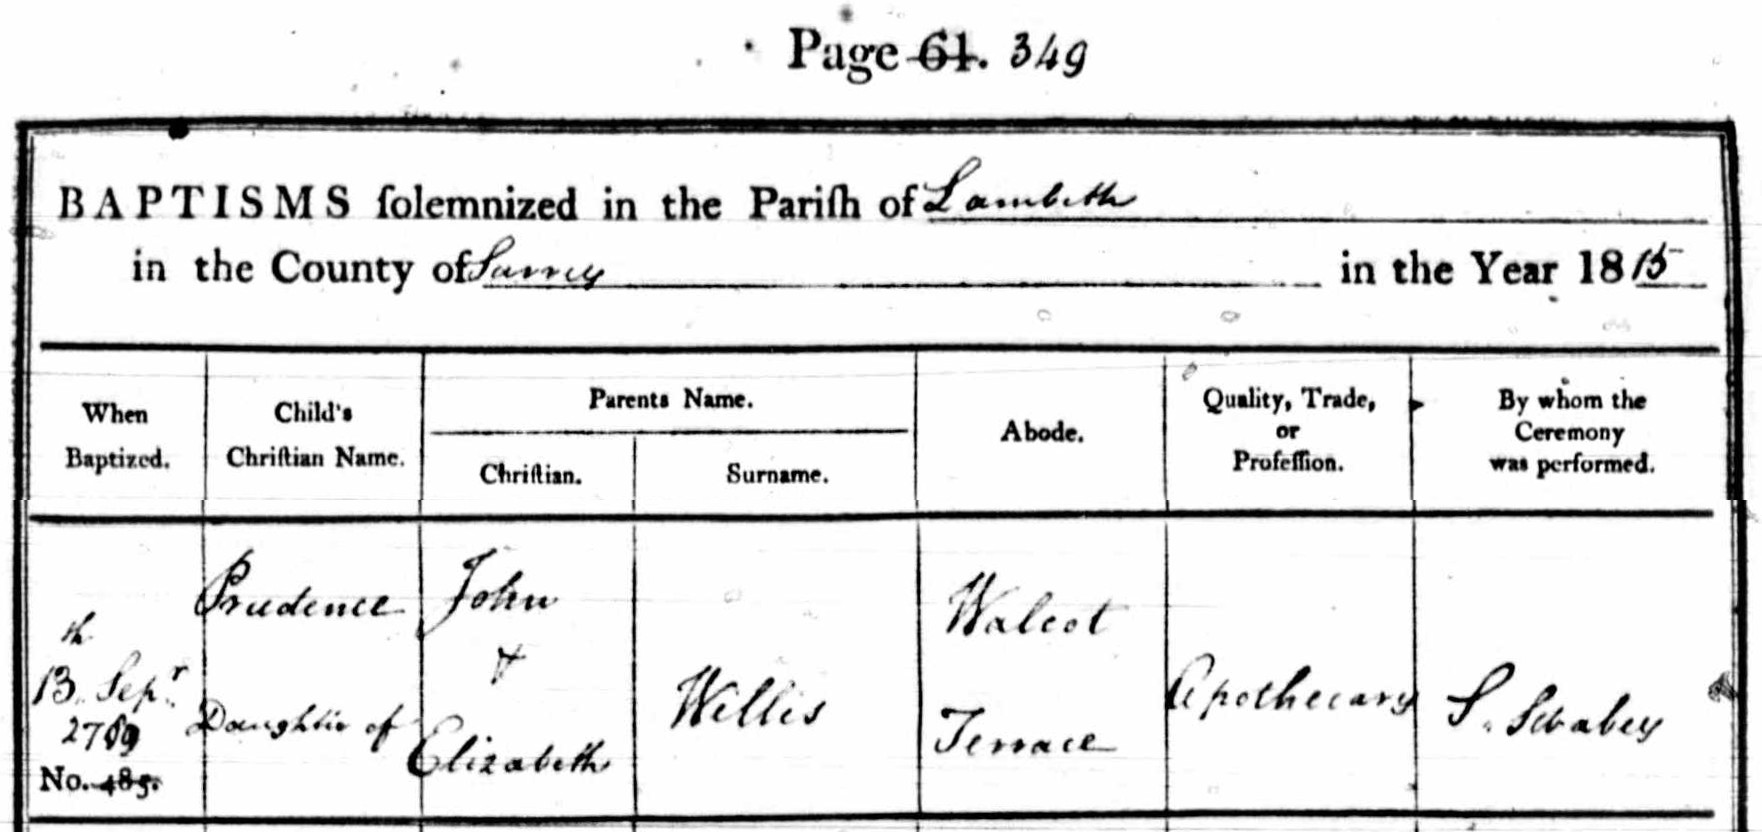 Page 61. 349
BAPTISMS ſolemnized in the Pariſh of Lambeth
in the County of Surrey in the Year 1815
When
Baptized.
Child's
Chriſtian Name.
Parents Name.
Chriſtian.
Surname.
Abode.
Quality, Trade,
or
Profeſſion.
By whom the
Ceremony
was performed.
13th Sepr.
2789
No. 485.
Prudence
Daughter of
John
&
Elizabeth
Willis
Walcot
Terrace
Apothecary
S. Swabey